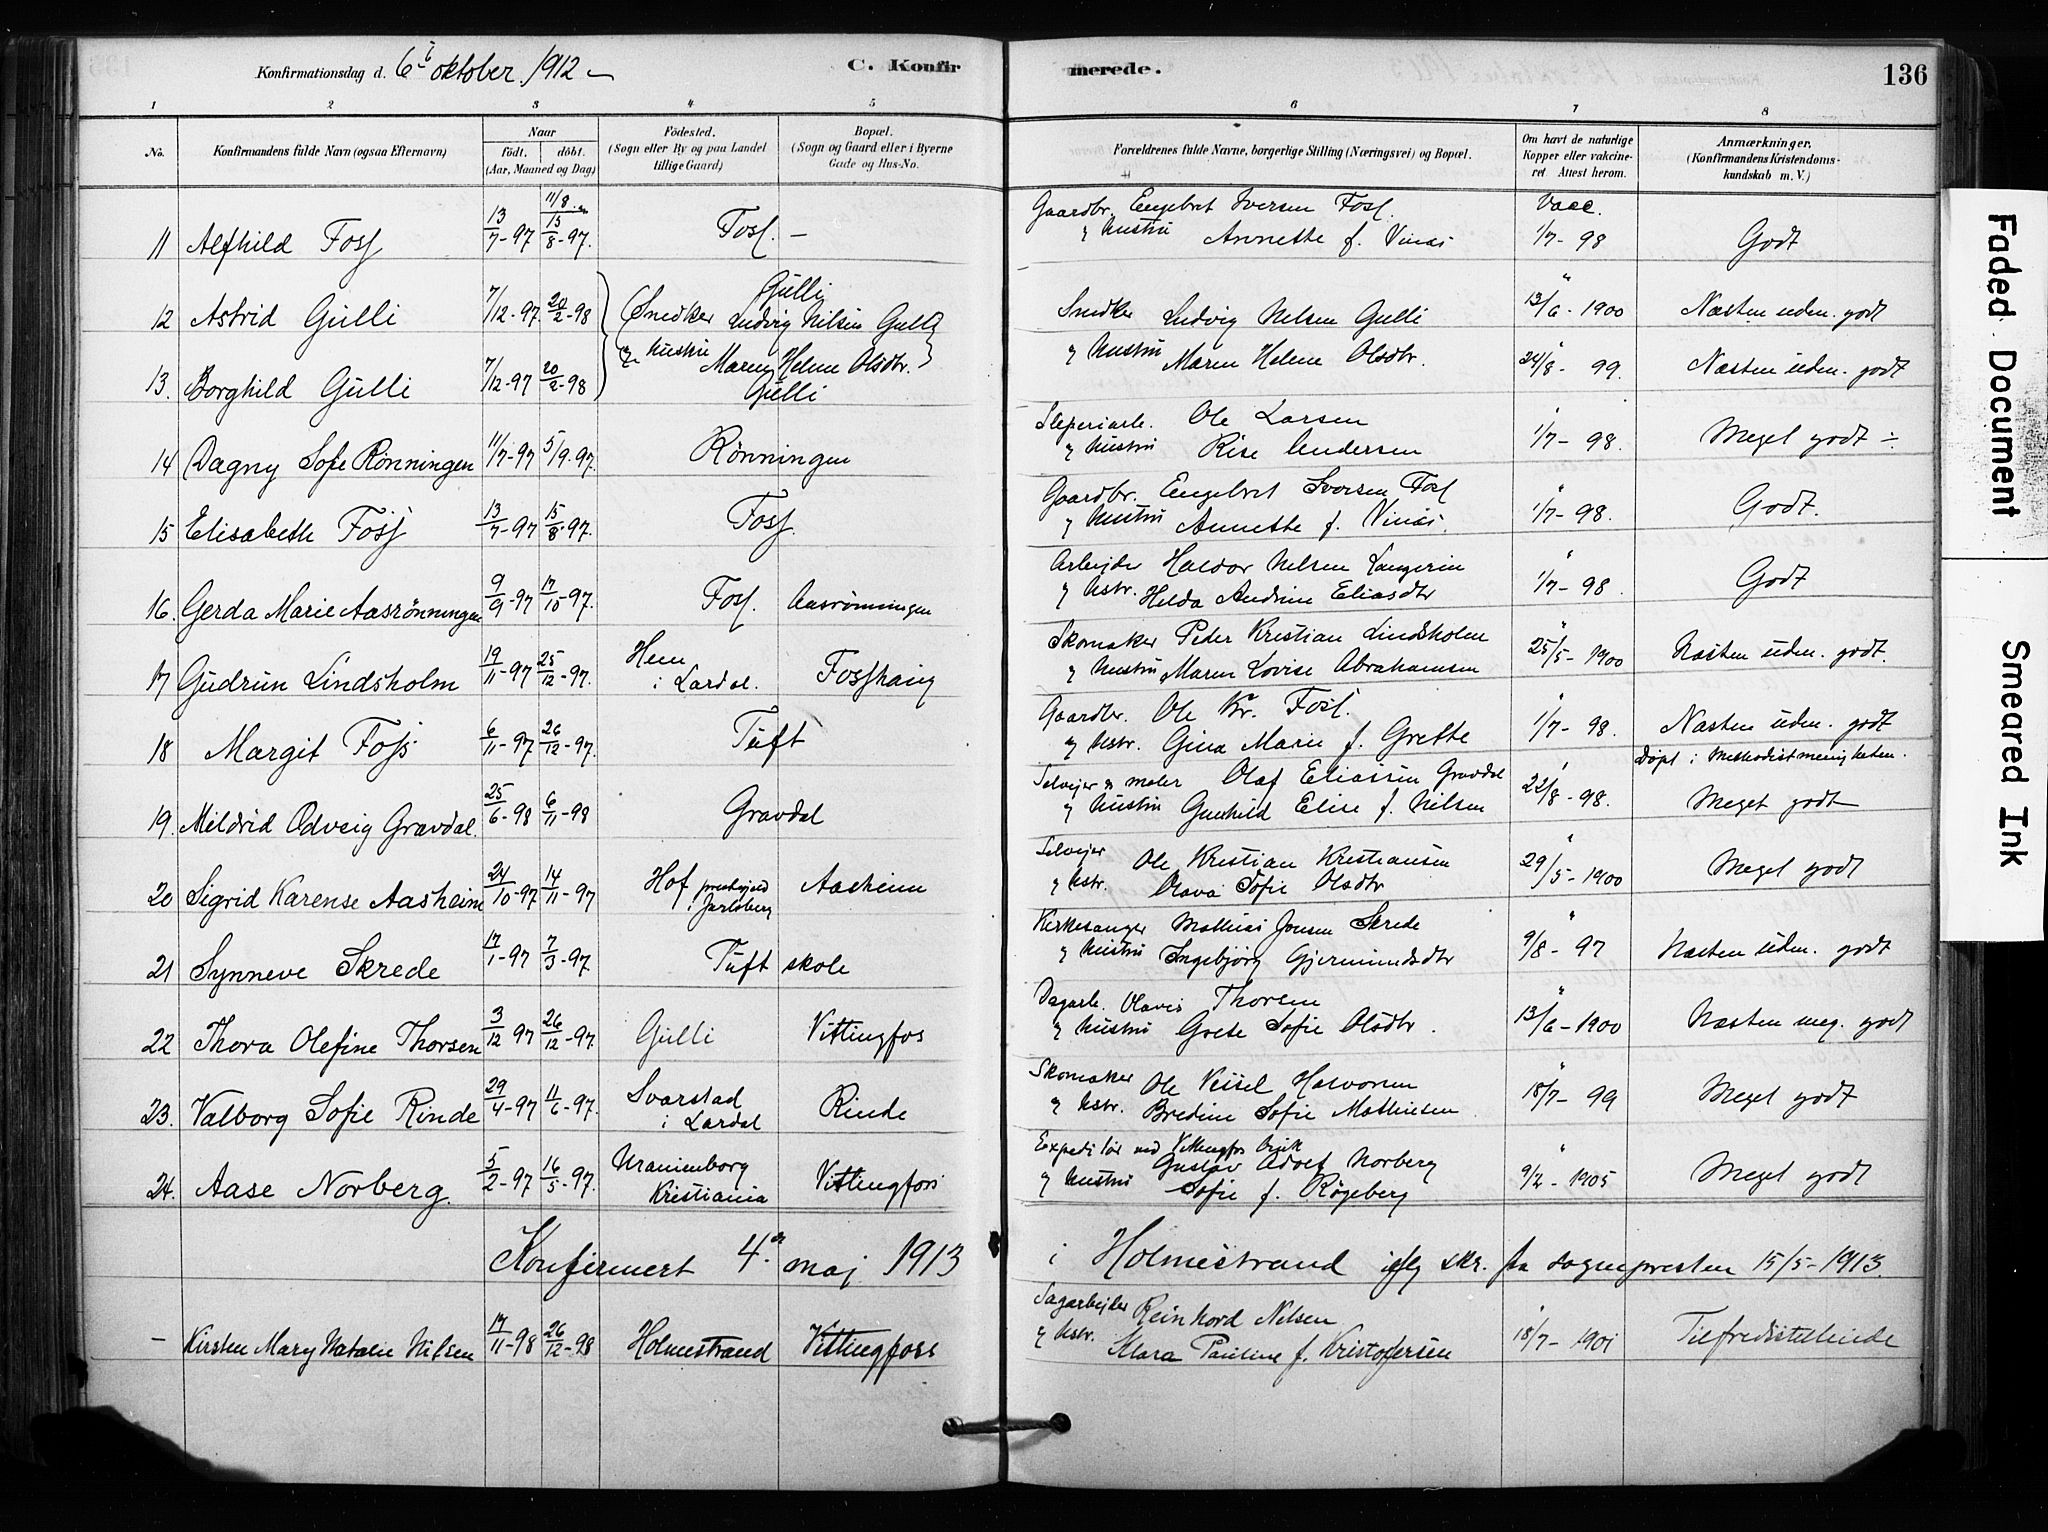 Konfirmationsdag d. 6te oktober 1912 –
C. Konfirmerede.
136
1 2 3 4 5 6 7 8
No.
Konfirmandens fulde Navn (ogsaa Efternavn)
Naar
födt. döbt.
(Aar, Maaned og Dag)
Födested.
(Sogn eller By og paa Landet
tillige Gaard)
Bopæl.
(Sogn og Gaard eller i Byerne
Gade og Hus-No.
Forældrenes fulde Navne, borgerlige Stilling (Næringsvei) og Bopæl.
Om havt de naturlige
Kopper eller vakcine-
ret. Attest herom.
Anmærkninger,
(Konfirmandens Kristendoms-
kundskab m. V.)
11 Alfhild Foss 13/7-97 15/8-97. Foss. – Gaardbr. Engebret Iversen Foss.
& Hustru Annette f. Vinæs Vacc. 1/7-98 Godt
12 Astrid Gulli 7/12-97. 20/2-98 Gulli
(Snedker Ludvig Nilsen Gulli Snedker Ludvig Nelsen Gulli 13/6-1900 Næsten uden. godt
13. Borghild Gulli 7/12-97 20/2-98 & Hustru Maren Helene Olsdtr.) & Hustru Maren Helene Olsdtr. 24/8-99. Næsten uden. godt
Gulli
14 Dagny Sofie Rönningen 11/7-97 5/9-97. Rönningen Sliperiarb. Ole Larsen
& Hustru Rise Andersen 1/7-98. Meget godt ÷
15 Elisabeth Foss 13/7-97 15/8-97. Foss. Gaardbr. Engebret Iversen Foss
& Hustru Annette f. Vinæs. 1/7-98. Godt.
16. Gerda Marie Aasrönningen 9/9-97 17/10-97. Foss. Aasrönningen Arbejder Haldor Nelsen
& Hstr. Helda Andrine Eliasdtr 1/7-98. Godt
17 Gudrun Lindsholm 19/11-97 25/12-97. Hem
i Lardal. Fosshaug Skomaker Peder Kristian Lindsholm
& Hustru Maren Lovise Abrahamsen 25/5-1900 Næsten uden. godt.
18 Margit Foss 6/11-97 26/12-97. Tuft Gaardbr. Ole Kr. Foss.
& Hstr. Gina Marie f. Grette 1/7-98. Næsten uden. godt
19. Mildrid Odveig Gravdal. 25/6-98 6/11-98 Gravdal Selvejer & maler Olaf Eliassen Gravdal
& Hustru Gunhild Elise f. Nilsen 22/8-98. Døpt i Methodistmenigheten.
Meget godt
20 Sigrid Karense Aasheim 24/10-97 14/11-97 Hof prestegjeld
i Jarlsberg Aasheim Selvejer Ole Kristian Kristiansen
& Hstr. Olava Sofie Olsdtr 29/5-1900 Meget godt
21 Synneve Skrede 17/1-97 7/3-97 Tuft skole Kirkesanger Mathias Jonsen Skrede
& Hustru Ingebjörg Gjermundsdtr 9/8-97 Næsten uden. godt
22 Thora Olefine Thorsen 3/12 97 26/12-97. Gulli Vittingfos Dagarb. Olavus Thorsen
& Hustru Grete Sofie Olsdtr. 13/6-1900 Næsten meg. godt
23. Valborg Sofie Rinde 29/4-97 11/6-97. Svarstad
i Lardal Rinde Skomaker Ole Halvorsen
& Hstr. Bredine Sofie Mathisen 18/7-99 Meget godt
24. Aase Norberg. 5/2-97 16/5-97. Uranienborg
Kristiania Vittingfoss Expeditör ved Vittingfos Bruk
Gustav Adolf Norberg
& Hustru Sofie f. Rögeberg 9/2-1905 Meget godt
Konfirmert 4de maj 1913 i Holmestrand iflg skr. fra sognepresten 15/5-1913.
– Kirsten Mary Natalie Nilsen 17/11-98 26/12-98 Holmestrand Vittingfoss Sagarbejder Reinhord Nelsen
& Hstr. Klara Pauline f. Kristofersen 18/7-1901 Tilfredsstillende
Faded Document
Smeared Ink